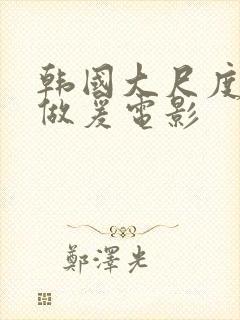 韩國大尺度
做爰電影
鄭澤光